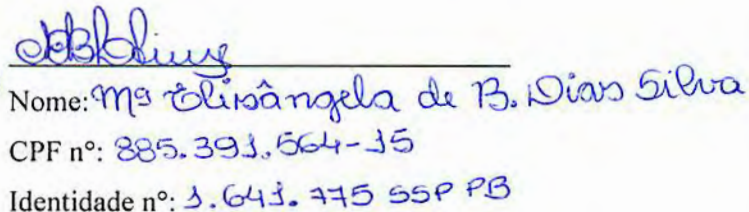 Nome: Mª Elisângela de B. Dias Silva
CPF nº: 885.391.564-15
Identidade nº: 1.641.775 SSP PB